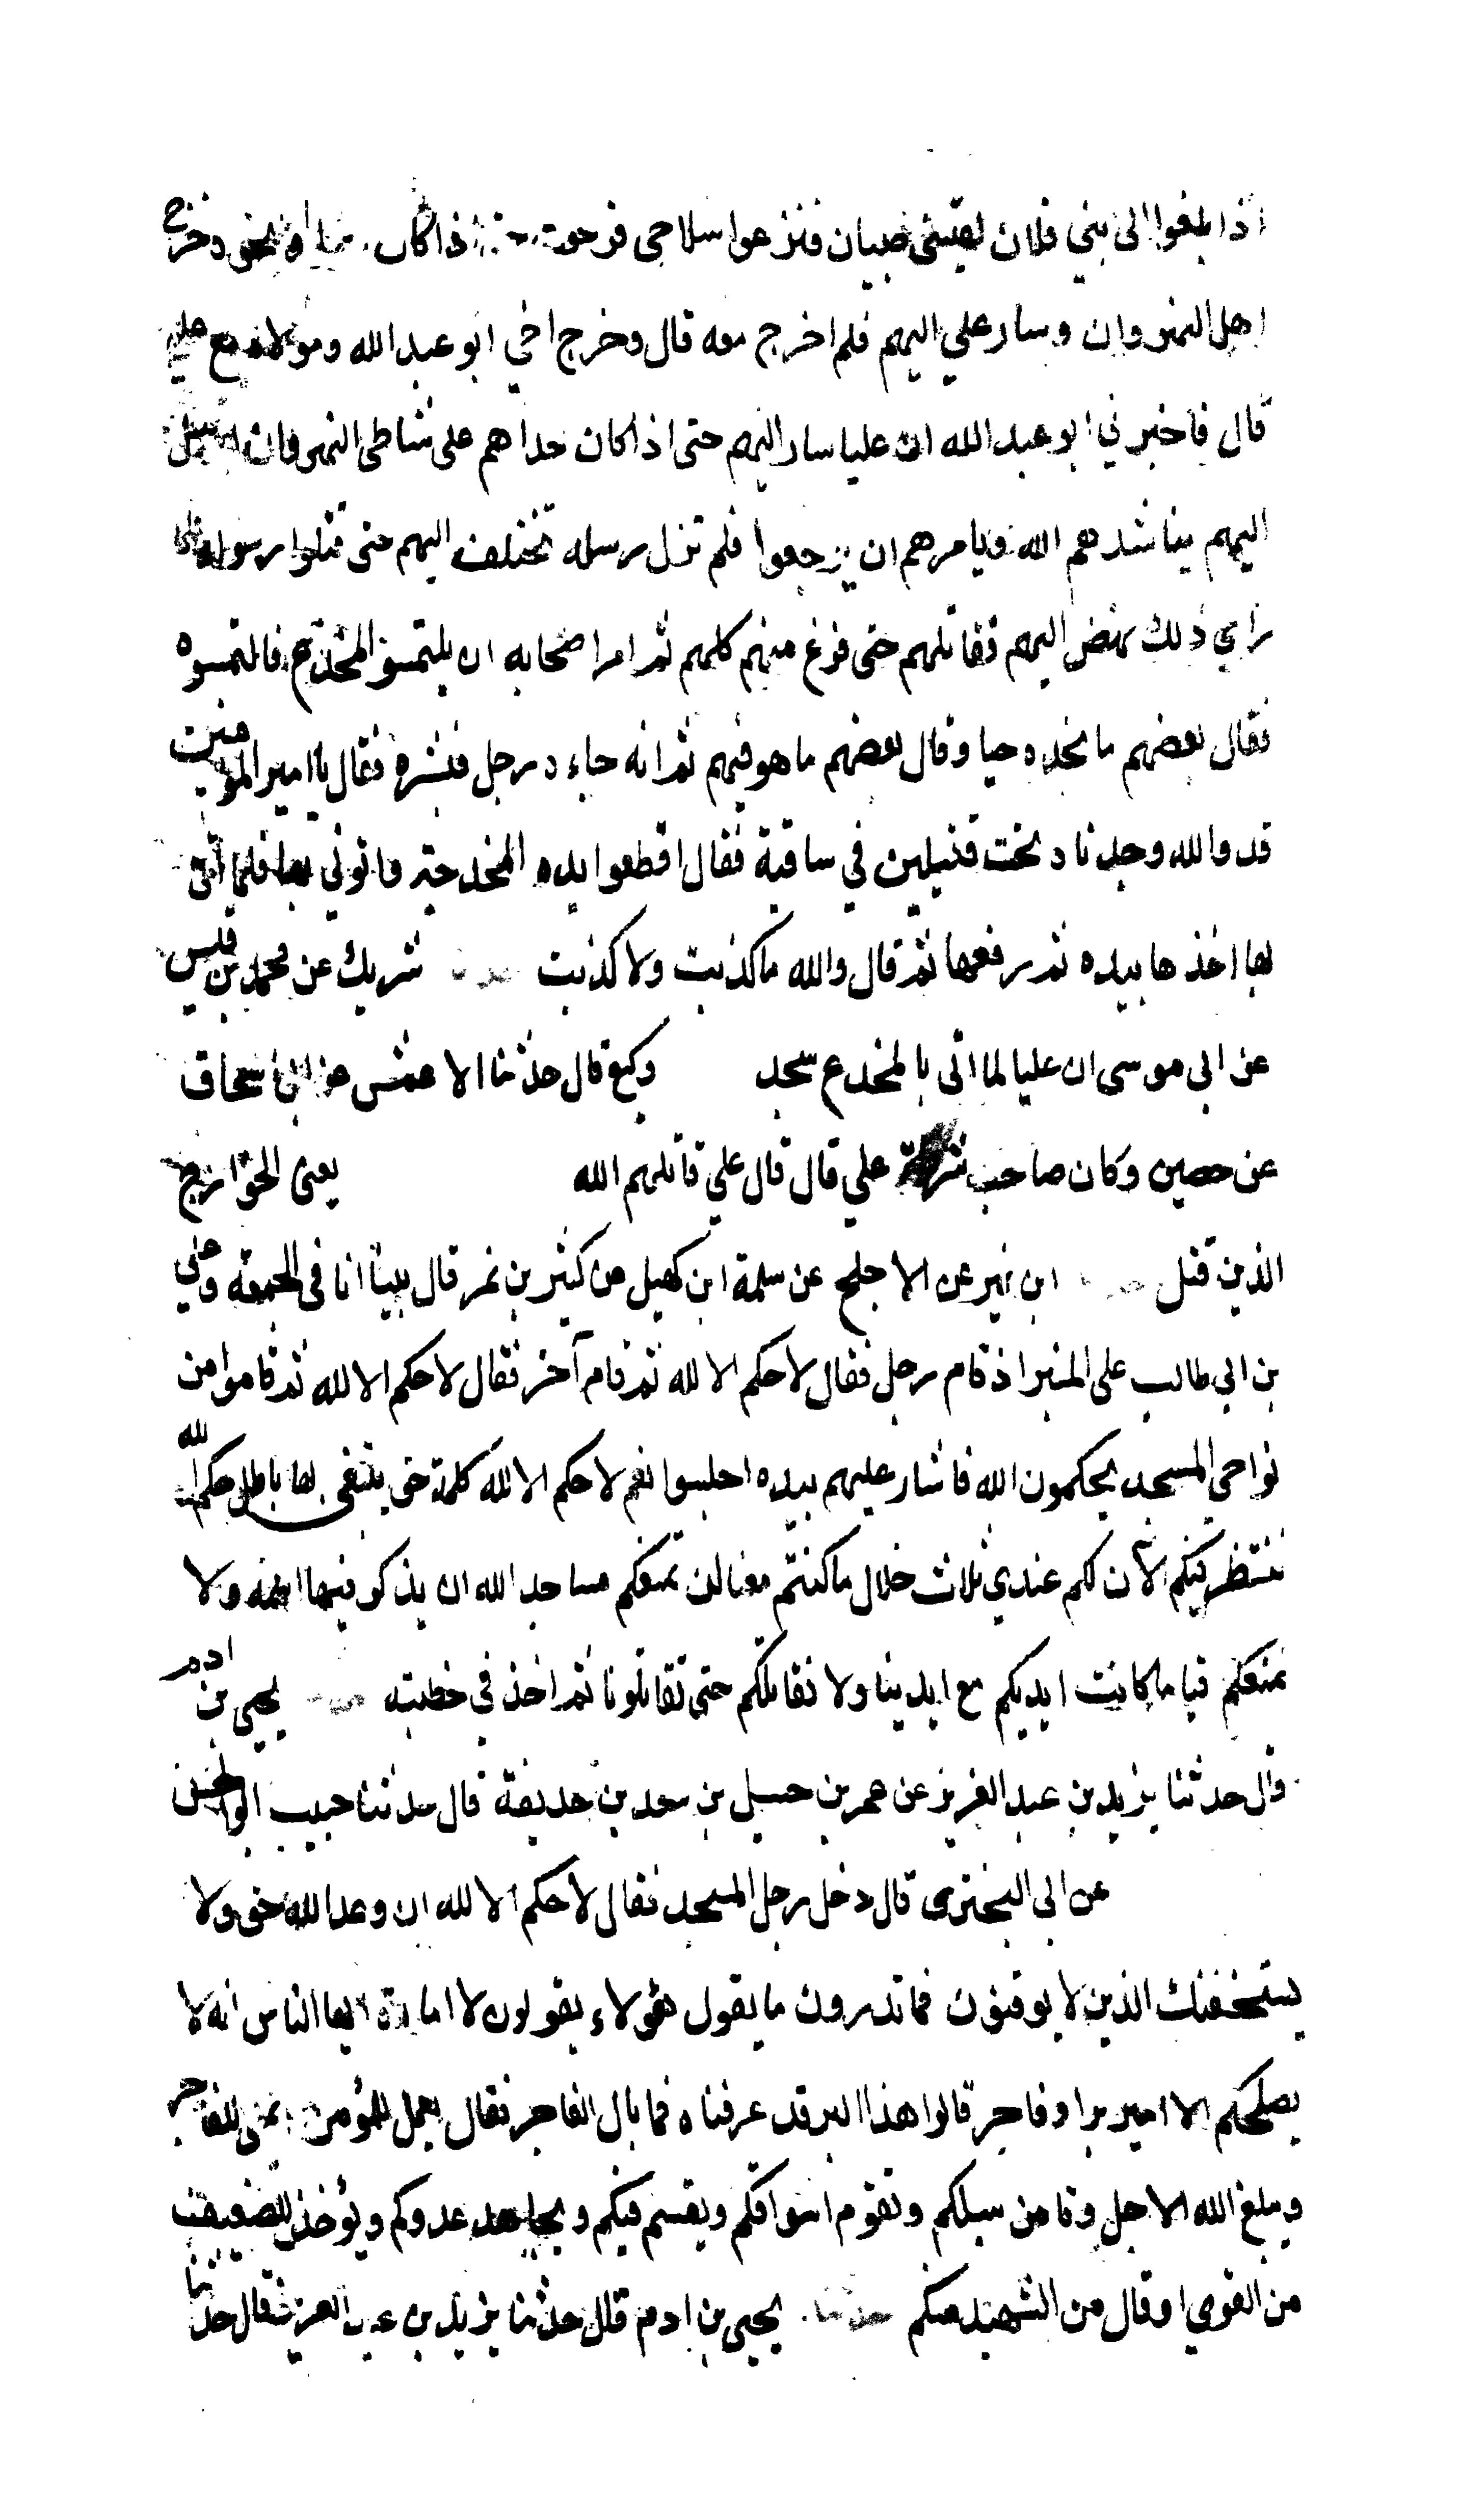 اذا بلغوا الى بني فلان لقيني صبيان فنزعوا سلاحي فرجعت حتى اذا كان وخرج
اهل النهروان وسار علي اليهم فلم اخرج معه قال وخرج اخي ابو عبد الله ومولاه مع علي
قال فاخبرني ابو عبد الله ان عليا سار اليهم حتى اذا كان حداهم على شاطى النهروان ارسل
اليهم يناشدهم الله ويامرهم ان يرجعوا فلم تزل رسله تختلف اليهم حتى قتلوا رسوله فلما
راى ذلك نهض اليهم فقاتلهم حتى فرغ منهم كلهم ثم امر اصحابه ان يلتمسوا المخدج فالتمسوه
فقال بعضهم ما نجده حيا وقال بعضهم ما هو فيهم ثم انه جاءه رجل فبشره فقال يا امير المؤمنين
قد والله وجدناه تحت قتيلين في ساقية فقال اقطعوا يده المخدجة واتوني بها فلما اتى
بها اخذها بيده ثم رفعها ثم قال والله ما كذبت ولا كذبت حدثنا شريك عن محمد بن قيس
عن ابي موسى ان عليا لما اتى بالمخدع سجد وكيع قال حدثنا الاعمش عن ابي اسحاق
عن حصين وكان صاحب شرطة علي قال قال علي قاتلهم الله يعنى الخوارج
الذين قتل ابن نمير عن الاجلح عن سلمة ابن كهيل عن كثير بن نمر قال بينا انا في الجمعة وعلي
بن ابي طالب على المنبر اذ قام رجل فقال لا حكم الا لله ثم قام آخر فقال لا حكم الا لله ثم قاموا من
نواحي المسجد يحكمون الله فاشار عليهم بيده اجلسوا نعم لا حكم الا لله كلمة حق يبتغى بها باطل حكم الله
ننتظر فيكم الآن لكم عندي ثلاث خلال ما كنتم معنا لن نمنعكم مساجد الله ان يذكر فيها اسمه ولا
نمنعكم فيا ما كانت ايديكم مع ايدينا ولا نقاتلكم حتى تقاتلونا ثم اخذ في خطبته حدثنا يحيى بن ادم
قال حدثنا يزيد بن عبد العزيز عن عمر بن حسيل بن سعد بن حذيفة قال حدثنا حبيب ابو الحسن
عن ابي البختري قال دخل رجل المسجد فقال لا حكم الا لله ان وعد الله حق ولا
يستخفنك الذين لا يوقنون فما تدرون ما يقول هؤلاء يقولون لا امارة ايها الناس انه لا
يصلحكم الا امير برا وفاجر قالوا هذا البر قد عرفناه فما بال الفاجر فقال يعمل المؤمن ويملى للفاجر
ويبلغ الله الاجل وتامن سبلكم وتقوم اسواقكم ويقسم فيكم ويجاهد عدوكم ويؤخذ للضعيف
من القوي او قال من الشهيد منكم حدثنا يحيى بن ادم قال حدثنا يزيد بن عبد العزيز قال حدثنا